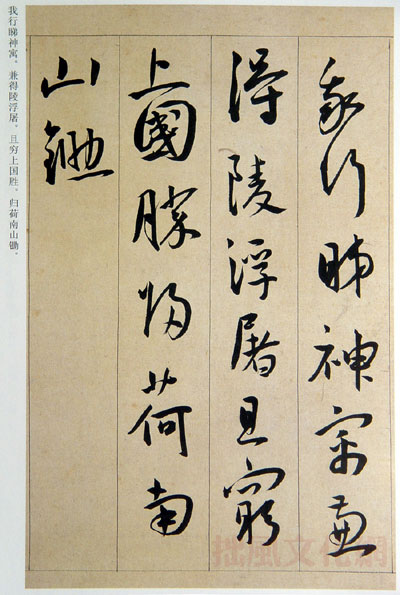 我行睇神寓兼
得陵浮屠且窮
上國勝歸荷南
山鋤
我行睇神寓。兼得陵浮屠。且穷上国胜。归荷南山锄。
拙風文化網